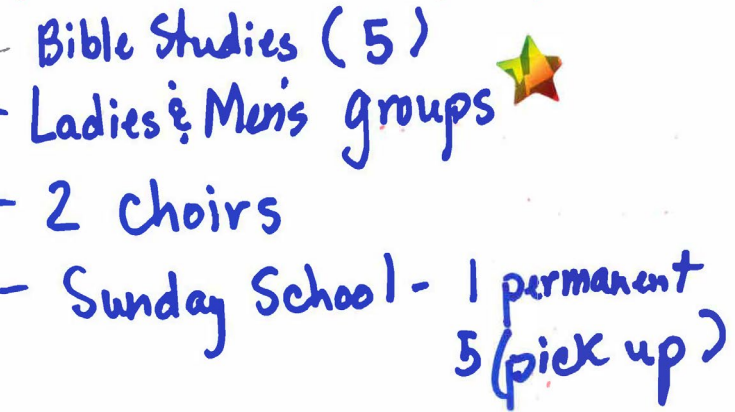 - Bible Studies (5)
- Ladies & Men's groups
- 2 Choirs
- Sunday School - 1 permanent
5 (pick up)